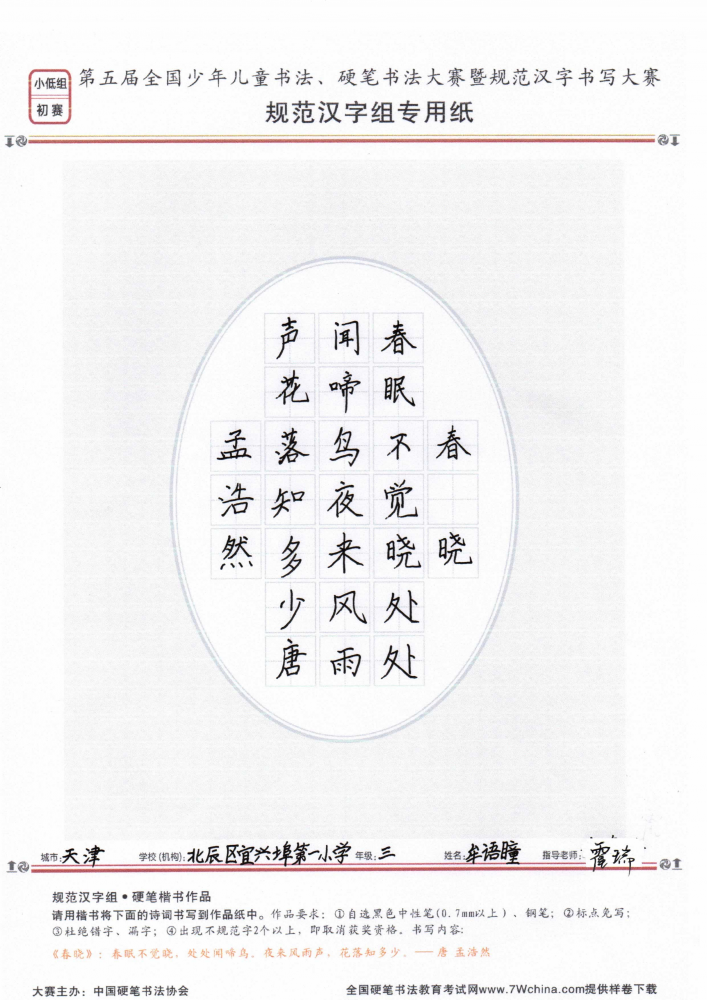 小低组
初赛
第五届全国少年儿童书法、硬笔书法大赛暨规范汉字书写大赛
规范汉字组专用纸
春晓
春眠不觉晓处处
闻啼鸟夜来风雨
声花落知多少唐
孟浩然
城市:天津 学校(机构):北辰区宜兴埠第一小学 年级:三 姓名:牟语瞳 指导老师:霍瑞
规范汉字组•硬笔楷书作品
请用楷书将下面的诗词书写到作品纸中。作品要求:①自选黑色中性笔(0.7mm以上)、钢笔;②标点免写;
③杜绝错字、漏字;④出现不规范字2个以上,即取消获奖资格。书写内容:
《春晓》:春眠不觉晓,处处闻啼鸟。夜来风雨声,花落知多少。——唐 孟浩然
大赛主办:中国硬笔书法协会 全国硬笔书法教育考试网www.7Wchina.com提供样卷下载